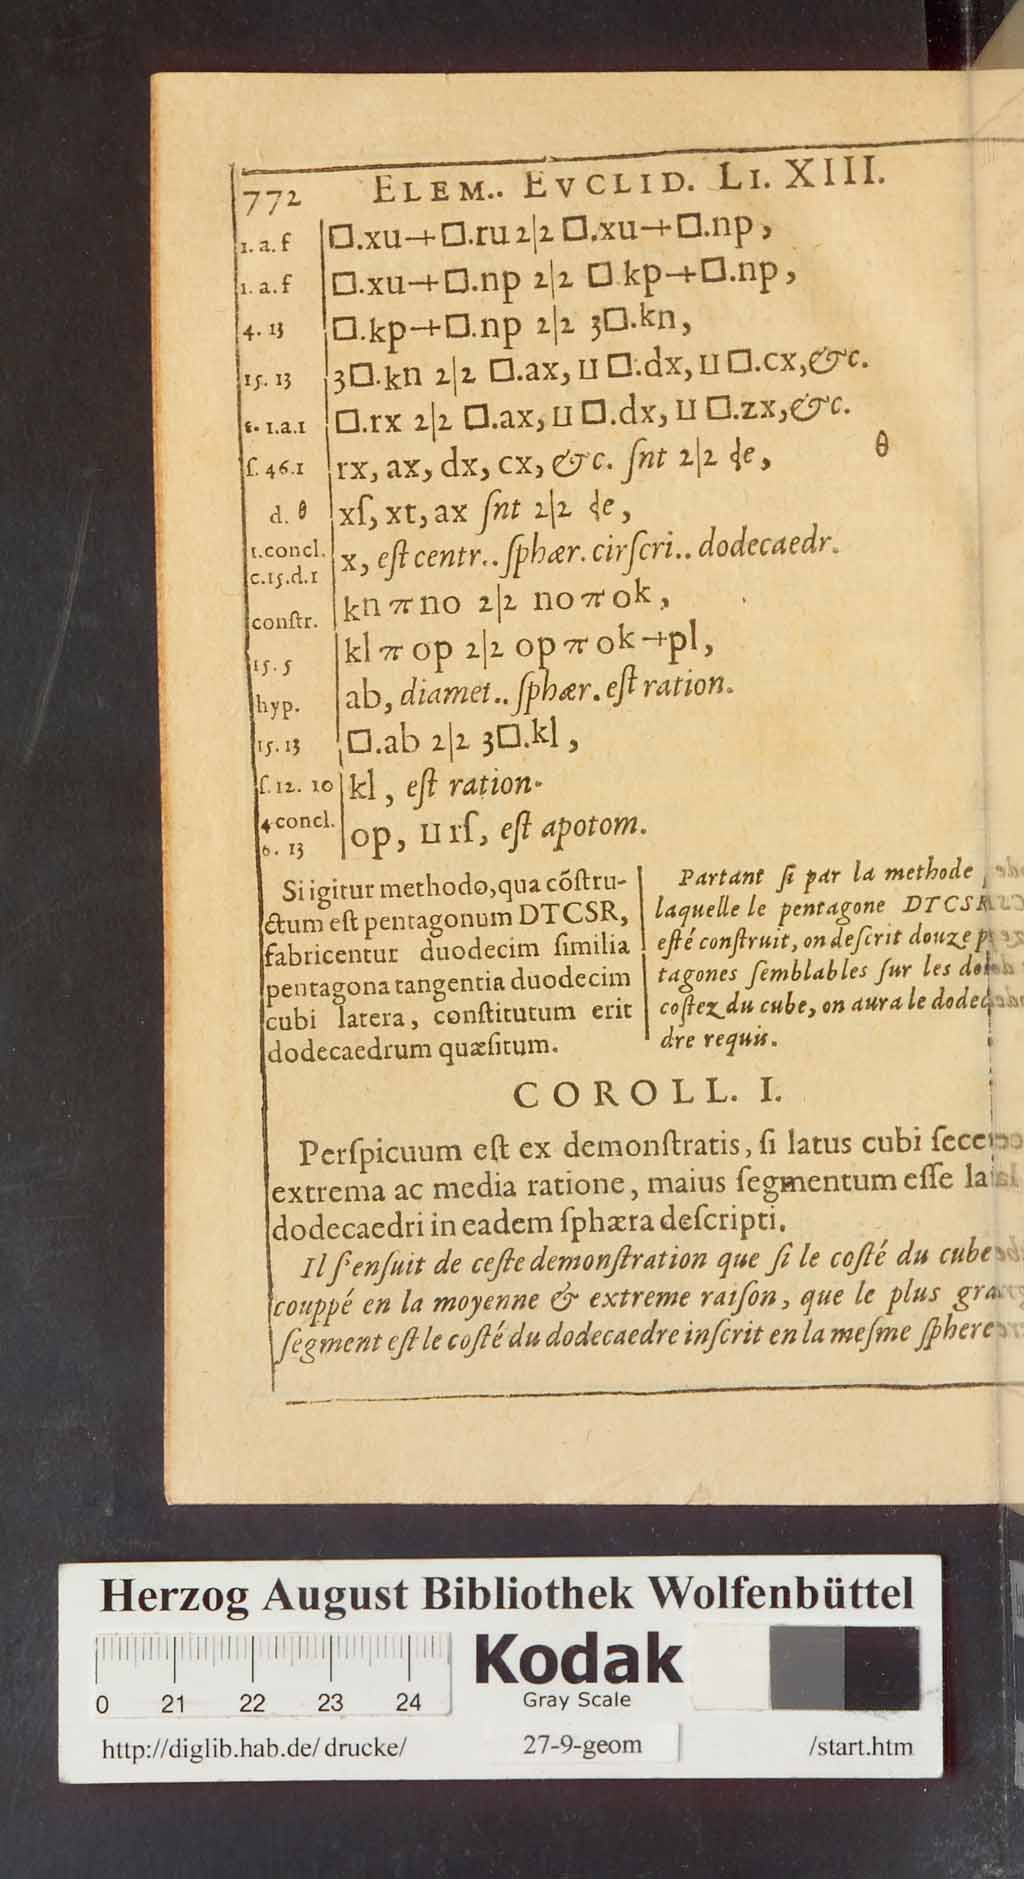 772 ELEM.. EVCLID. LI. XIII.
1. a. f □.xu+□.ru 2|2 □.xu+□.np,
1. a. f □.xu+□.np 2|2 □ kp+□.np,
4. 13 □.kp+□.np 2|2 3□.kn,
15. 13 3□.kn 2|2 □.ax, ⊔ □.dx, ⊔ □.cx, &c.
1.a.1 □.rx 2|2 □.ax, ⊔ □.dx, ⊔ □.zx, &c.
ſ. 46.1 rx, ax, dx, cx, &c. ſnt 2|2 ɖe, θ
d. θ xſ, xt, ax ſnt 2|2 ɖe,
1.concl.
c.15.d.1 x, eſt centr.. ſphær. cirſcri.. dodecaedr.
conſtr. kn π no 2|2 no π ok,
15. 5 kl π op 2|2 op π ok+pl,
hyp. ab, diamet.. ſphær. eſt ration.
15. 13 □.ab 2|2 3□.kl,
ſ. 12. 10 kl, eſt ration.
4 concl.
6. 13 op, ⊔ rſ, eſt apotom.
Si igitur methodo, qua cõſtru-
ctum eſt pentagonum DTCSR,
fabricentur duodecim ſimilia
pentagona tangentia duodecim
cubi latera, conſtitutum erit
dodecaedrum quæſitum.
Partant ſi par la methode
laquelle le pentagone DTCSR
eſté conſtruit, on deſcrit douze p
tagones ſemblables ſur les do
coſtez du cube, on aura le dodec
dre requis.
COROLL. I.
Perſpicuum eſt ex demonſtratis, ſi latus cubi ſece
extrema ac media ratione, maius ſegmentum eſſe la
dodecaedri in eadem ſphæra deſcripti.
Il ſ'enſuit de ceſte demonſtration que ſi le coſté du cube
couppé en la moyenne & extreme raiſon, que le plus gra
ſegment eſt le coſté du dodecaedre inſcrit en la meſme ſphere
Herzog August Bibliothek Wolfenbüttel
Kodak
Gray Scale
0 21 22 23 24
http://diglib.hab.de/drucke/ 27-9-geom /start.htm